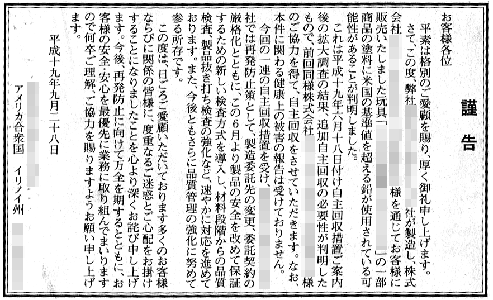 謹告
お客様各位
平素は格別のご愛顧を賜り、厚く御礼申し上げます。
さて、この度、弊社 社が製造し、株式
会社 様を通じてお客様に
販売いたしました玩具「 」の一部
商品の塗料に米国の基準値を超える鉛が使用されている可
能性があることが判明しました。
これは平成十九年六月十八付け自主回収措置ご案内
後の拡大調査の結果、追加自主回収の必要性が判明した
もので、前回同様株式会社 様
のご協力を得て、自主回収をさせていただきます。なお、
本件に関わる健康上の被害の報告は受けておりません。
今回の一連の自主回収措置を受け
社では再発防止策として、製造委託先の変更、委託契約の
厳格化とともに、この6月より製品の安全を改めて保証
するための新しい検査方式を導入し、材料段階からの品質
検査、製品抜き打ち検査の強化など、速やかに対応を進めて
おります。また、今後ともさらに品質管理の強化に努めて
参る所存です。
この度は、日ごろご愛顧いただいております多くのお客様
ならびに関係の皆様に、度重なるご迷惑とご心配をお掛け
することになりましたことを心より深くお詫び申し上げ
ます。今後、再発防止に向けて万全を期するとともに、お
客様の安全・安心を最優先に業務に取り組んでまいります
ので何卒ご理解、ご協力を賜りますようお願い申し上げ
ます。
平成十九年九月二十八日
アメリカ合衆国 イリノイ州